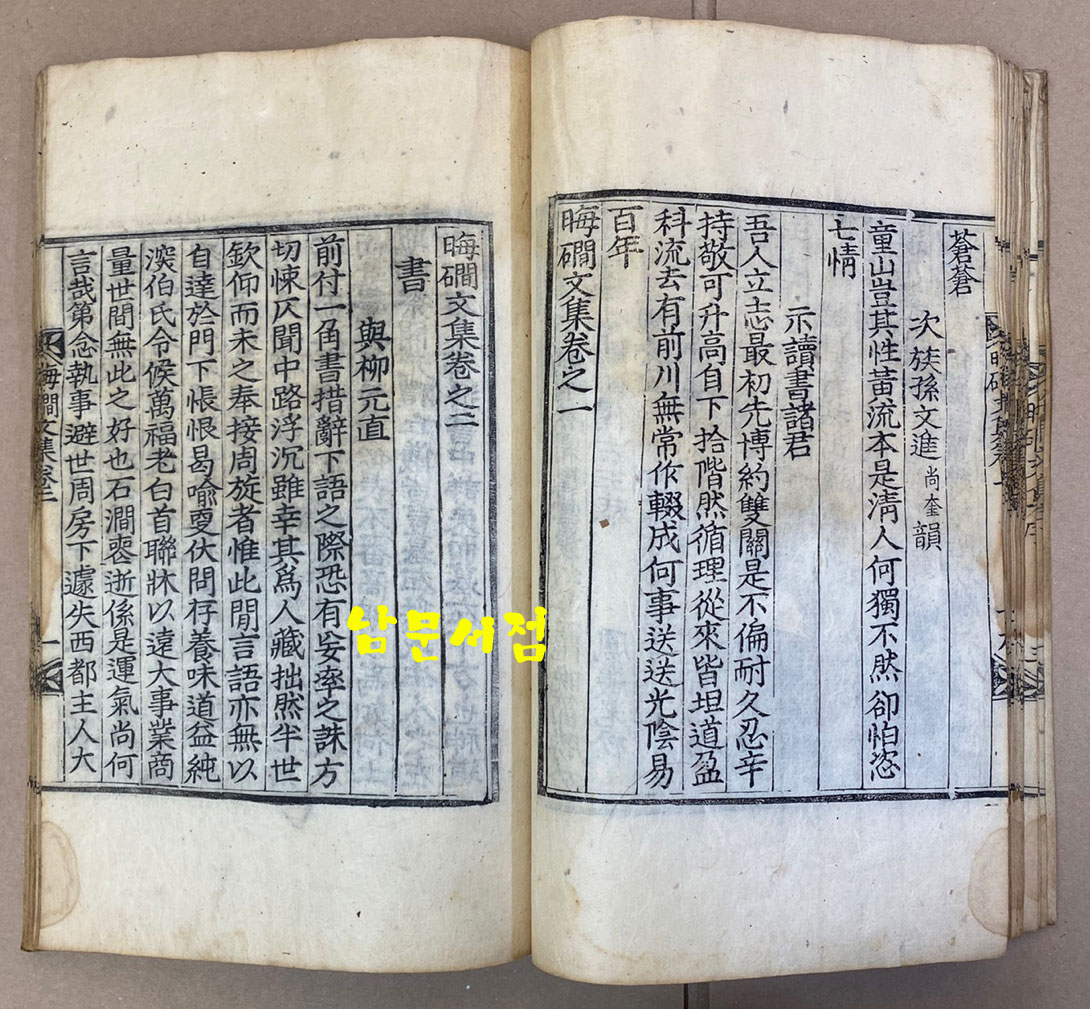 蒼蒼
次族孫文進尚奎韻
童山豈其性黃流本是淸人何獨不然卻怕恣
七情
示讀書諸君
吾人立志最初先博約雙關是不偏耐久忍辛
持敬可升高自下拾階然循理從來皆坦道盈
科流去有前川無常作輟成何事送送光陰易
百年
晦磵文集卷之一
晦磵文集卷之二
書
與柳元直
前付一角書措辭下語之際恐有妄率之誅方
切悚仄聞中路浮沉雖幸其爲人藏拙然半世
欽仰而未之奉接周旋者惟此閒言語亦無以
自達於門下悵恨曷喩更伏問存養味道益純
深伯氏令候萬福老白首聯牀以遠大事業商
量世間無此之好也石澗喪逝係是運氣尚何
言哉第念執事避世周房下遽失西都主人大
晦磵文集卷二
一
남문서점